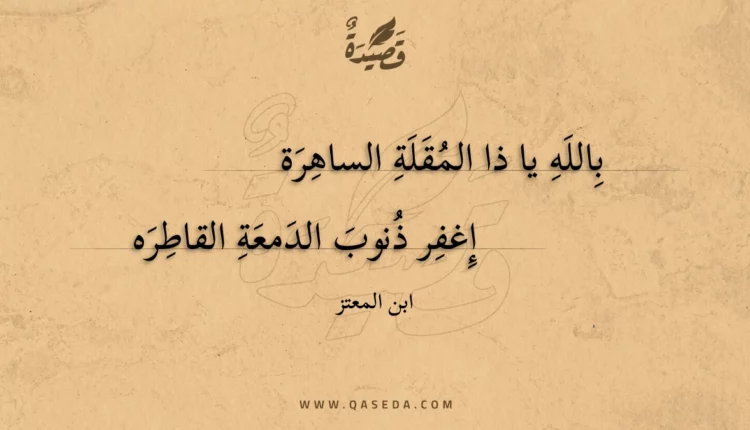 قَصِيْدَةٌ
بِاللَهِ يا ذا المُقَلَةِ الساهِرَة
إِغفِر ذُنوبَ الدَمعَةِ القاطِرَه
ابن المعتز
WWW.QASEDA.COM